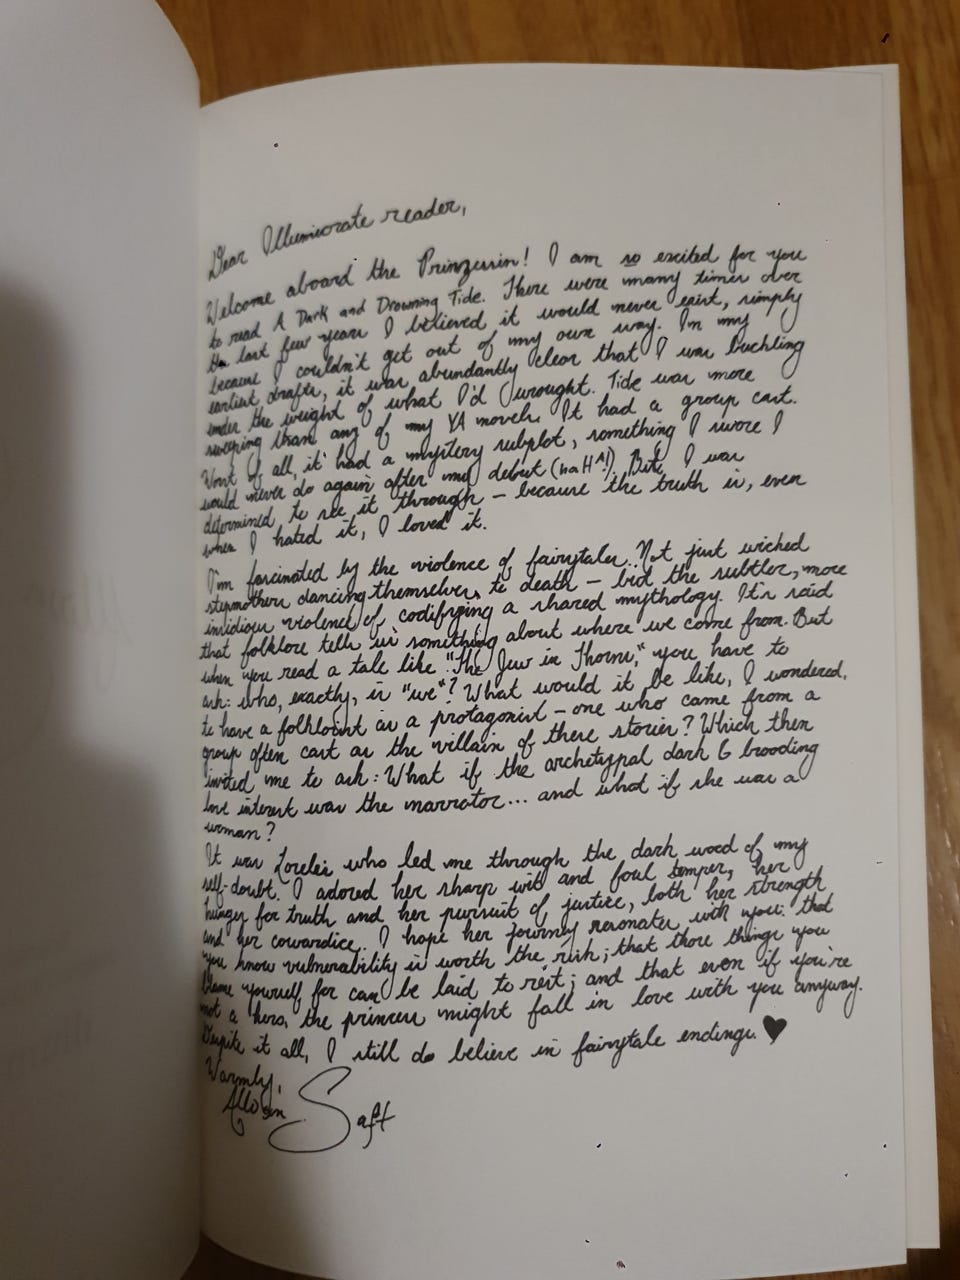 Dear Illumicrate reader,
Welcome aboard the Prinzessin! I am so excited for you
to read A Dark and Drowning Tide. There were many times over
the last few years I believed it would never exist, simply
because I couldn't get out of my own way. In my
earliest drafts, it was abundantly clear that I was buckling
under the weight of what I'd wrought. Tide was more
sweeping than any of my YA novels. It had a group cast.
Worst of all, it had a mystery subplot, something I swore I
would never do again after my debut (haHA!). But, I was
determined to see it through – because the truth is, even
when I hated it, I loved it.
I'm fascinated by the violence of fairytales. Not just wicked
stepmothers dancing themselves to death – but the subtler, more
insidious violence of codifying a shared mythology. It's said
that folklore tells us something about where we come from. But
when you read a tale like "The Jew in Thorns," you have to
ask: who, exactly, is "we"? What would it be like, I wondered,
to have a folklorist as a protagonist – one who came from a
group often cast as the villain of these stories? Which then
invited me to ask: What if the archetypal dark & brooding
love interest was the narrator... and what if she was a
woman?
It was Lorelei who led me through the dark wood of my
self-doubt. I adored her sharp wit and foul temper, her
hunger for truth and her pursuit of justice, both her strength
and her cowardice. I hope her journey resonates with you: that
you know vulnerability is worth the risk; that those things you
blame yourself for can be laid to rest; and that even if you're
not a hero, the princess might fall in love with you anyway.
Despite it all, I still do believe in fairytale endings. ♥
Warmly,
Allison Saft